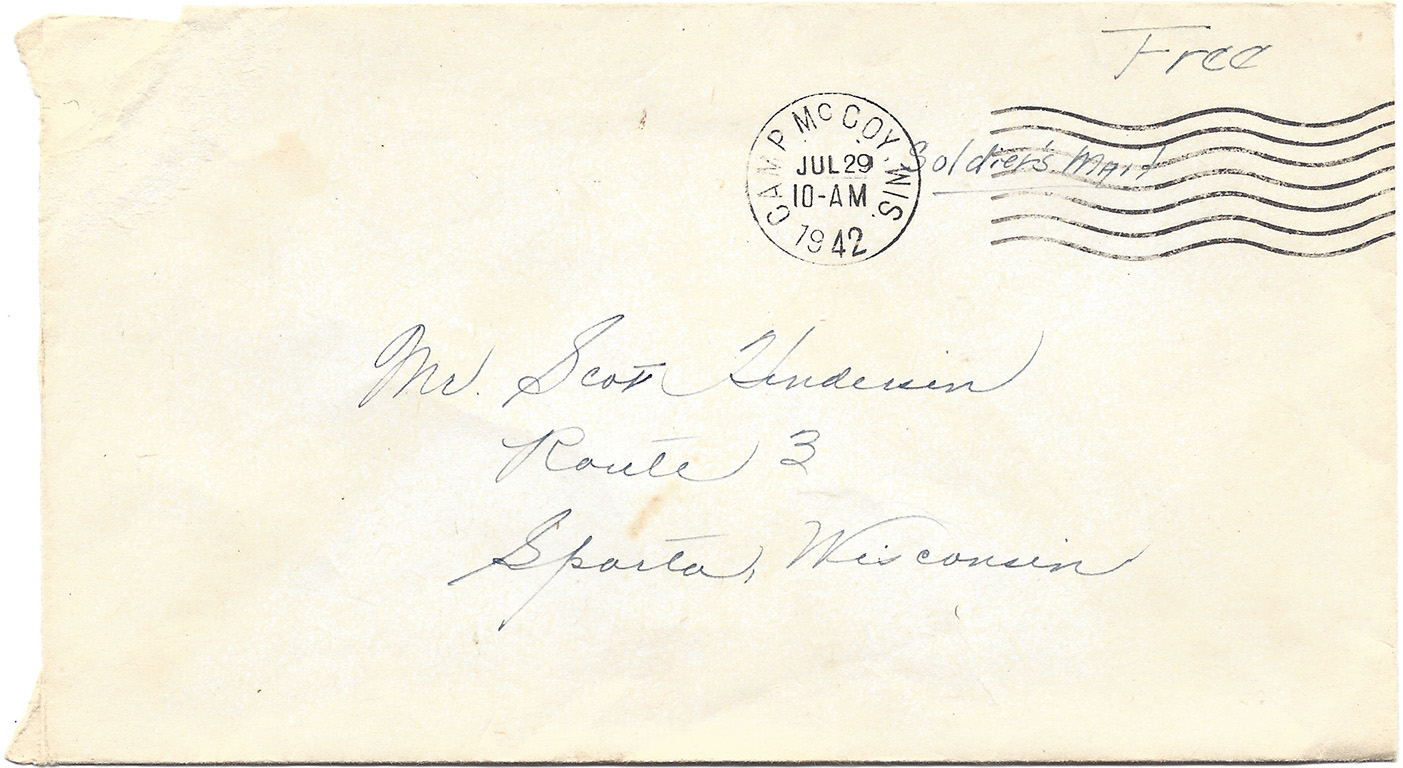 Free
CAMP McCOY, WIS.
JUL 29
10-AM
1942
Soldier's Mail
Mr. Scott Hendersin
Route 3
Sparta, Wisconsin